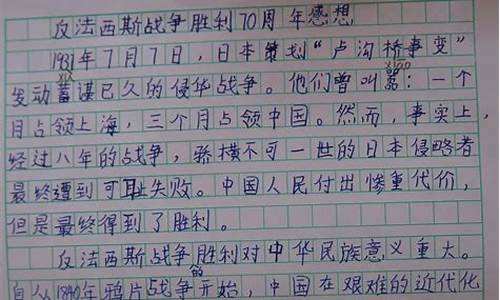 反法西斯战争胜利70周年感想
1937年7月7日，日本策划“卢沟桥事变”
发动蓄谋已久的侵华战争。他们曾叫嚣：一个
月占领上海，三个月占领中国。然而，事实上，
经过八年的战争，骄横不可一世的日本侵略者
最终遭到可耻失败。中国人民付出惨重代价，
但是最终得到了胜利。
反法西斯战争胜利对中华民族意义重大。
自从1840年鸦片战争的开始，中国在艰难的近代化